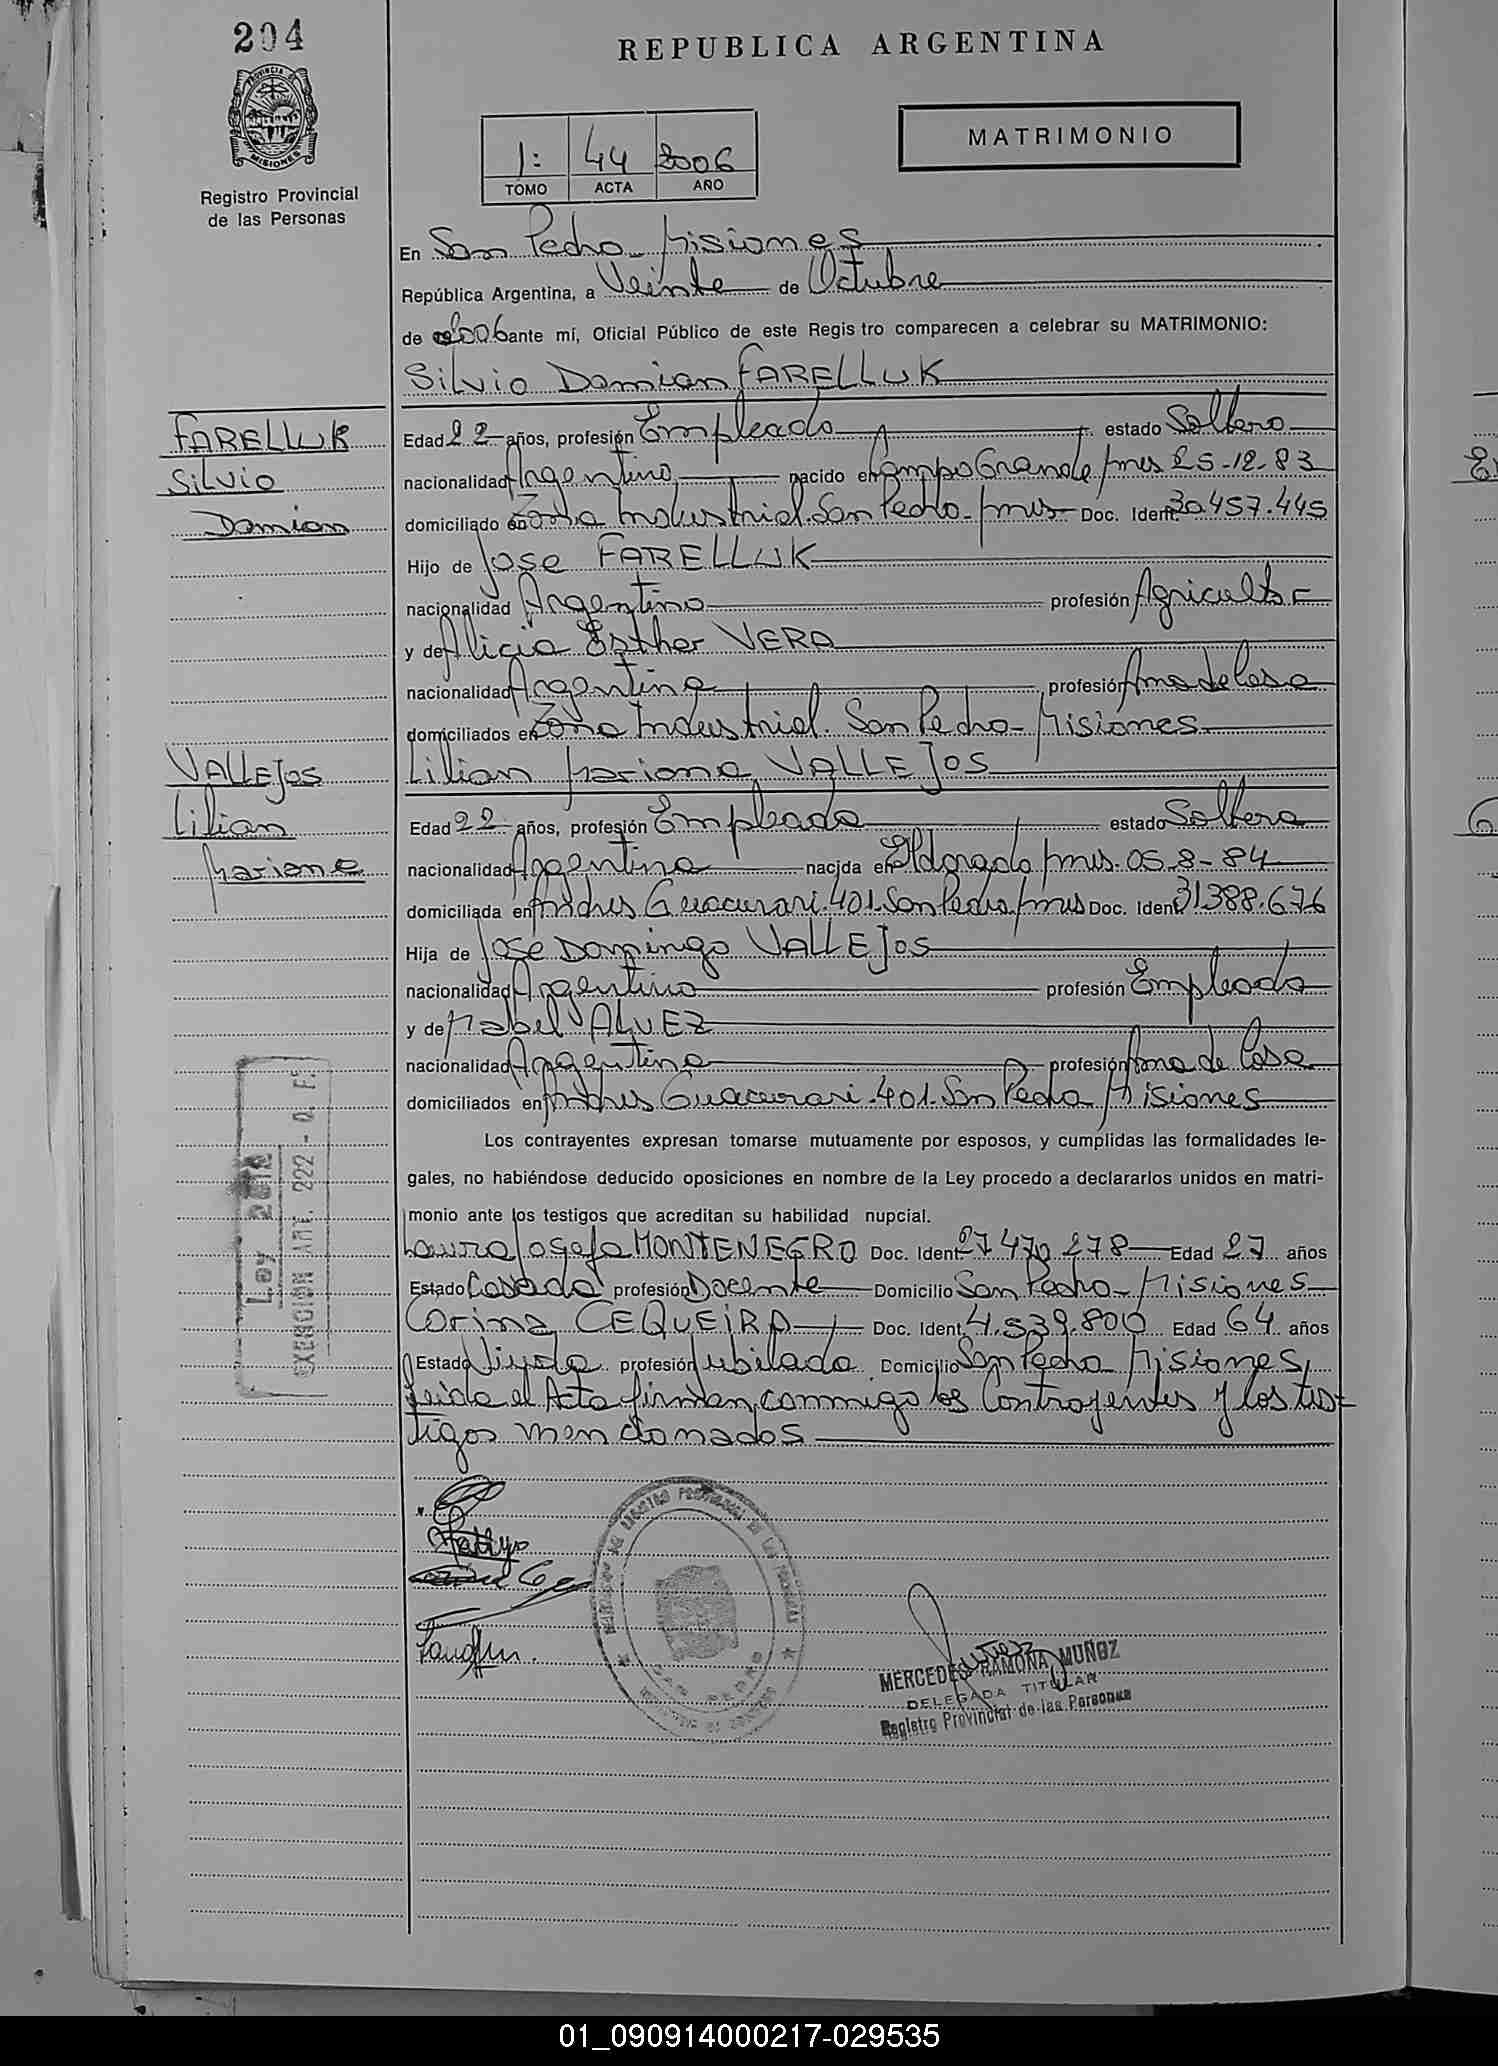 204
REPUBLICA ARGENTINA
PROVINCIA DE
MISIONES
Registro Provincial
de las Personas
MATRIMONIO
1: 44 2006
TOMO ACTA AÑO
En San Pedro - Misiones
República Argentina, a Veinte de Octubre
de 2006 ante mí, Oficial Público de este Registro comparecen a celebrar su MATRIMONIO:
Silvio Damian FARELLUK
FARELLUK
Silvio
Damian
Edad 22 años, profesión Empleado estado Soltero
nacionalidad Argentino nacido en Campo Grande Mnes 25-12-83
domiciliado en Zona Industrial. San Pedro - Mnes Doc. Ident. 30.457.445
Hijo de Jose FARELLUK
nacionalidad Argentino profesión Agricultor
y de Alicia Esther VERA
nacionalidad Argentina profesión Ama de Casa
domiciliados en Zona Industrial. San Pedro - Misiones
VALLEJOS
Lilian
Mariana
Lilian Mariana VALLEJOS
Edad 22 años, profesión Empleada estado Soltera
nacionalidad Argentina nacida en Eldorado Mnes. 05-8-84
domiciliada en Andres Guacurari. 401. San Pedro Mnes Doc. Ident. 31388.676
Hija de Jose Domingo VALLEJOS
nacionalidad Argentino profesión Empleado
y de Mabel ALVEZ
nacionalidad Argentina profesión Ama de Casa
domiciliados en Andres Guacurari. 401. San Pedro Misiones
Los contrayentes expresan tomarse mutuamente por esposos, y cumplidas las formalidades le-
gales, no habiéndose deducido oposiciones en nombre de la Ley procedo a declararlos unidos en matri-
monio ante los testigos que acreditan su habilidad nupcial.
Laura Josefa MONTENEGRO Doc. Ident. 27 470 278 Edad 27 años
Estado Casada profesión Docente Domicilio San Pedro - Misiones
Corina CEQUEIRA Doc. Ident. 4.539.800 Edad 64 años
Estado Viuda profesión Jubilada Domicilio San Pedro Misiones,
Leida el Acta firman conmigo los Contrayentes y los tes-
tigos mencionados
Ley
EXENCION ART. 222 -
SAN PEDRO
MERCEDES RAMONA MUÑOZ
DELEGADA TITULAR
Registro Provincial de las Personas
01_090914000217-029535